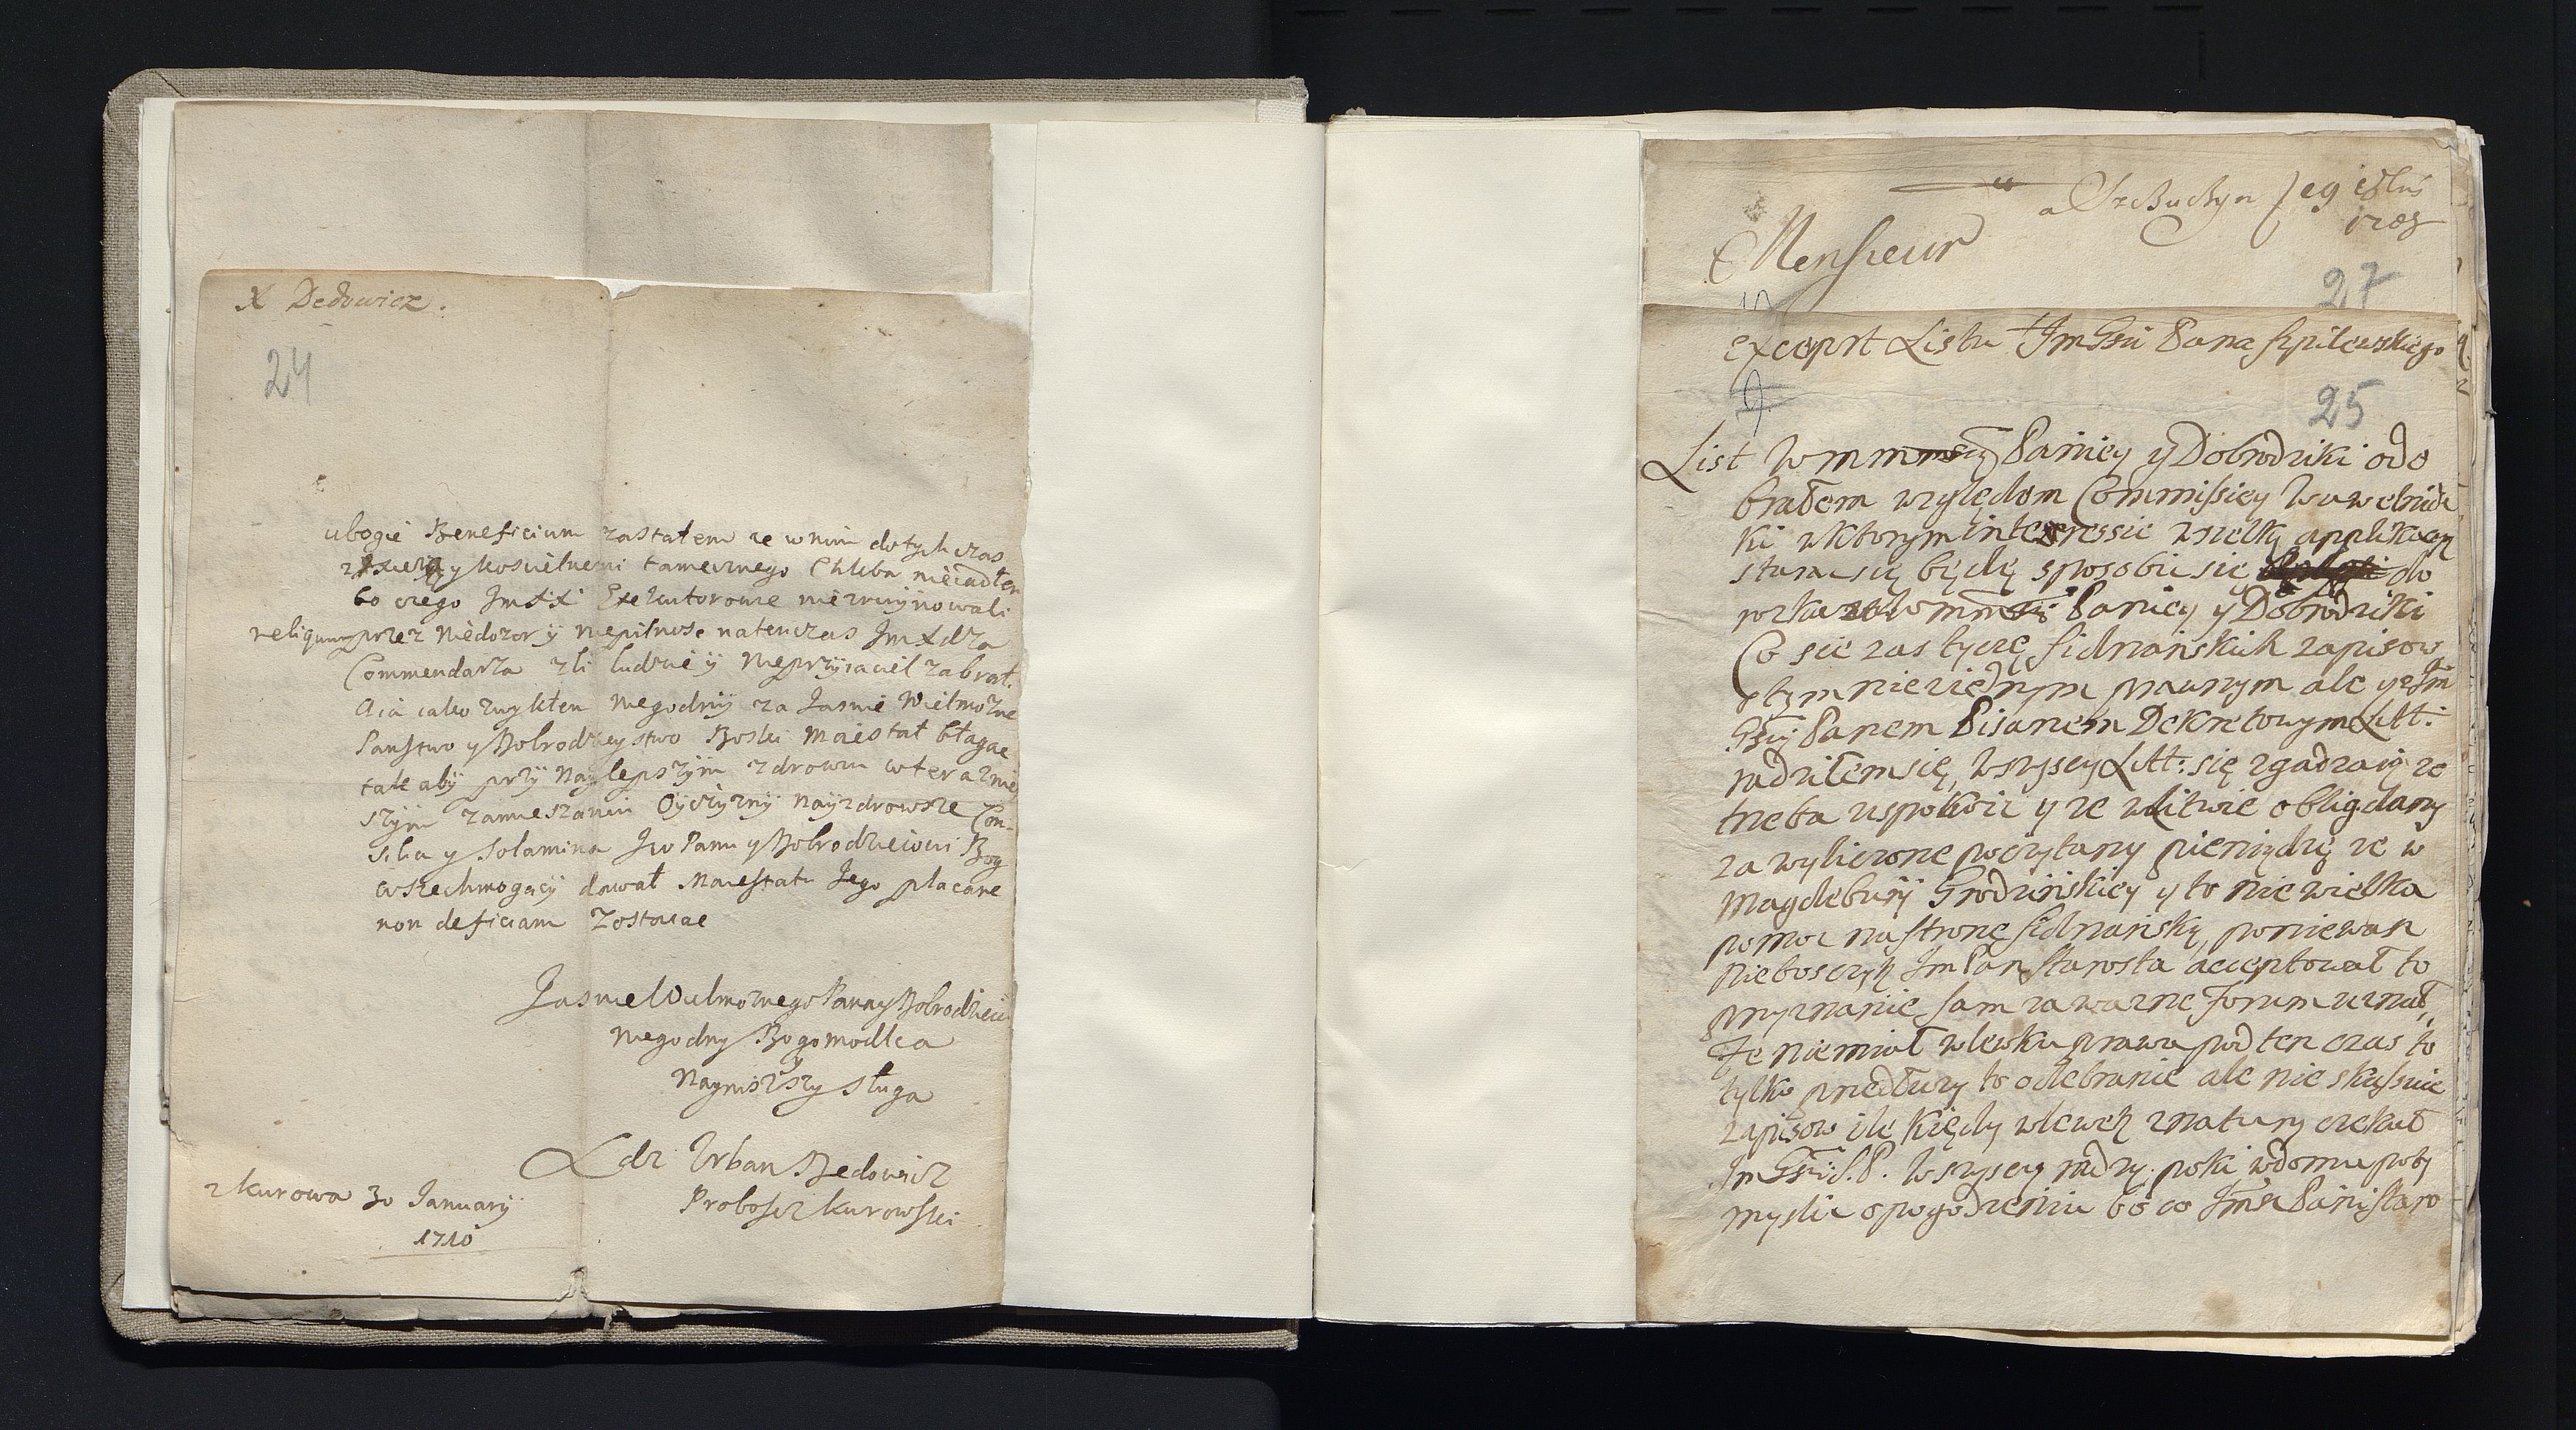 X Dedowicz.
24
ubogie Beneficium zastałem ze w nim dotychczas
y koscielnemi tamecznego Chleba nieiadłem
bo czego ImXX Exekutorowie niezruynowali
reliquum przez niedozor ÿ niepilnosc natenczas ImXdza
Commendarza zli ludzie ÿ nieprzÿiaciel zabrał.
A ia iako zwykłem niegodnÿ za Jasnie Wielmozne
Panstwo y Dobrodzieystwo Boski Maiestat błagac
tak abÿ przÿ naylepszÿm zdrowiu w teraznie
szÿm zamieszaniu Oÿczÿznÿ nayzdrowsze Con-
silia y solamina Jwo Panu y Dobrodzieiowi Bog
wszechmogący dawał Maiestatu Jego placare
non deficiam zostaiac
Jasnie Wielmoznego Pana y Dobrodzieia
niegodny Bogomodlca
y
naynizszy sługa
Xdz Urban Dedowicz
Proboszcz Kurowski
z Kurowa 30 Januarÿ
1710
a Szczuczyn 29
Monsieur
27
excerpt Listu Im Pana Szpilewskiego
25
List Wm Paniey y Dobrodziki ode
brałem względem Commissiey
ki w ktorym interessie wszelką applikacyą
starac się będę sposobic się do
rozkazow Paniey y Dobrodziki
Co sie zas tycze Sidrzańskich zapisow
o tym nie ziednym prawnym ale y z Im
Panem Pisarzem Dekretowym Litt:
radziłem się, wszyscy Litt: się zgadzaią ze
trzeba uspokoic y ze w Litwie oblig dany
za wyliczone poczytany pieniądze ze w
Magdeburÿ Grodzinskiey y to nie wielka
pomoc na stronę Sidrzańską, poniewasz
Nieboszczyk Im Pan Starosta acceptował to
przyznanie sam za wazne Forum uznał,
Ze niemiał wlewku prawa pod ten czas to
tylko przedłuzy to odebranie ale nie skassuie
zapisow ile kiedy wlewek z natury czekał
Im S.P. wszyscy radzą poki w domu poby
myslic o pogodzeniu bo co Im Pani Staro